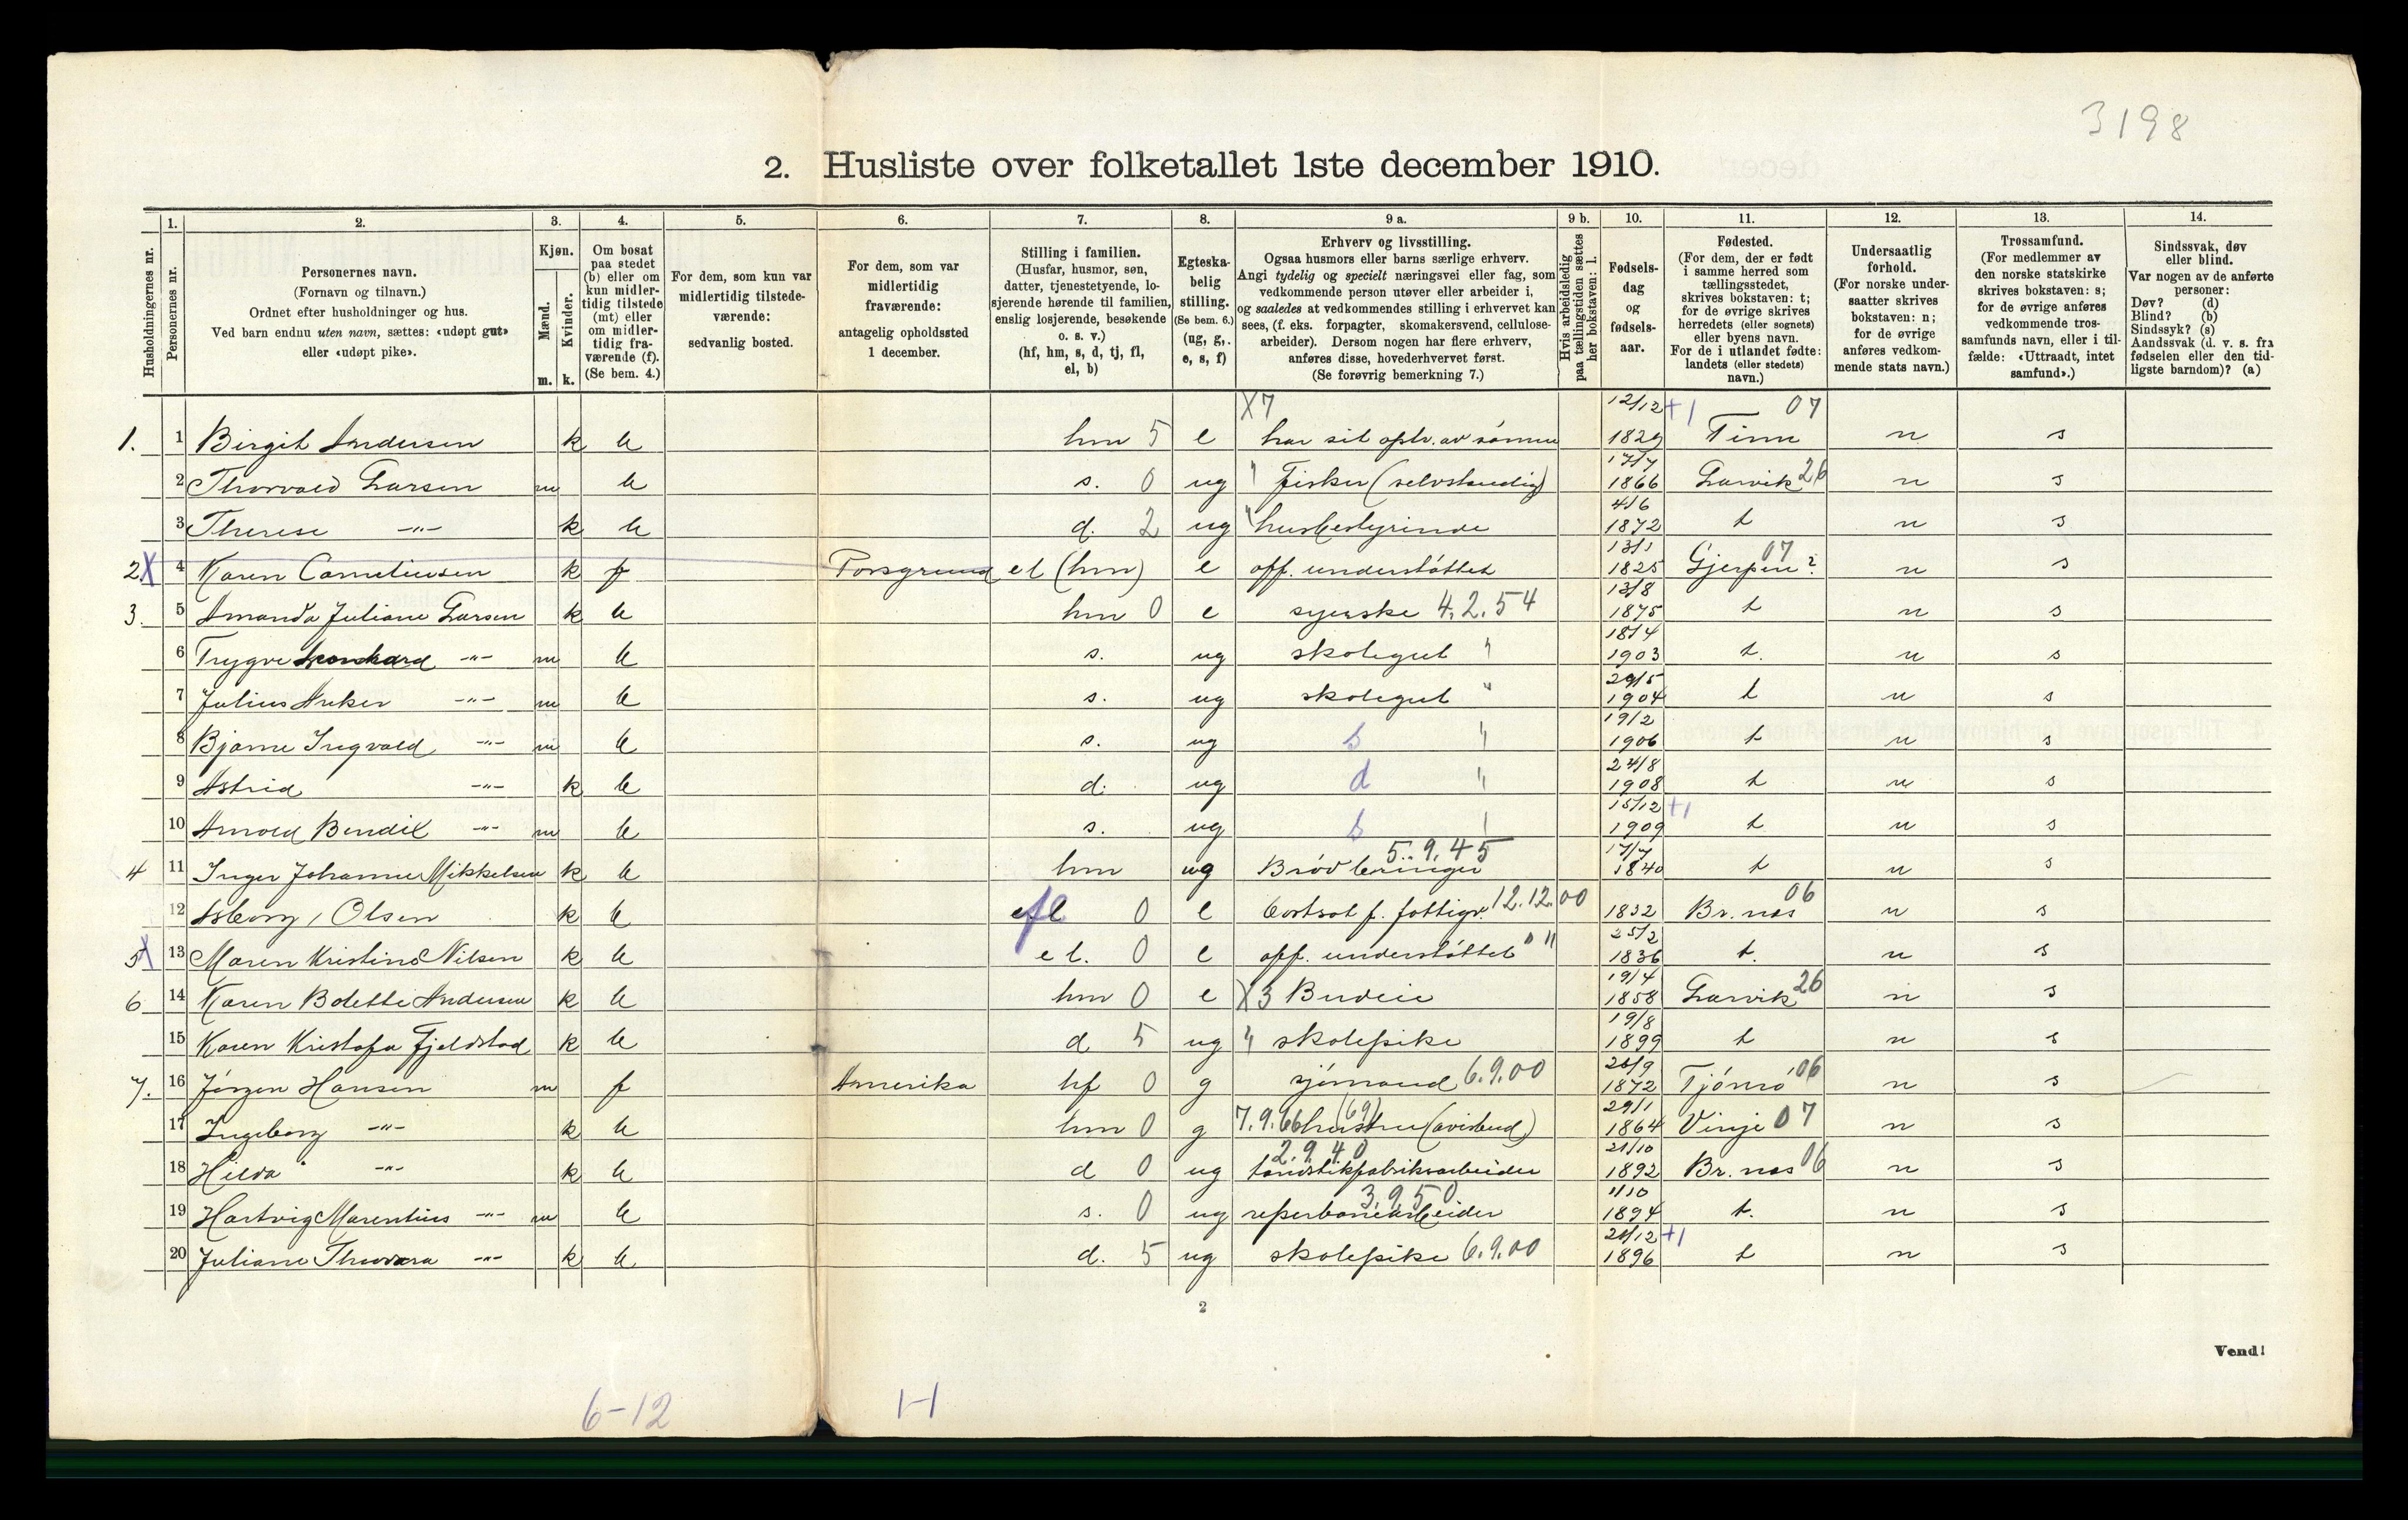 3198
2. Husliste over folketallet 1ste december 1910.
Husholdningernes nr.
1. Personernes nr.
2. Personernes navn.
(Fornavn og tilnavn.)
Ordnet efter husholdninger og hus.
Ved barn endnu uten navn, sættes: «udøpt gut»
eller «udøpt pike».
3. Kjøn.
Mænd. m.
Kvinder. k.
4. Om bosat
paa stedet
(b) eller om
kun midler-
tidig tilstede
(mt) eller
om midler-
tidig fra-
værende (f).
(Se bem. 4.)
5. For dem, som kun var
midlertidig tilstede-
værende:
sedvanlig bosted.
6. For dem, som var
midlertidig
fraværende:
antagelig opholdssted
1 december.
7. Stilling i familien.
(Husfar, husmor, søn,
datter, tjenestetyende, lo-
sjerende hørende til familien,
enslig losjerende, besøkende
o. s. v.)
(hf, hm, s, d, tj, fl,
el, b)
8. Egteska-
belig
stilling.
(Se bem. 6.)
(ug, g,
e, s, f)
9 a. Erhverv og livsstilling.
Ogsaa husmors eller barns særlige erhverv.
Angi tydelig og specielt næringsvei eller fag, som
vedkommende person utøver eller arbeider i,
og saaledes at vedkommendes stilling i erhvervet kan
sees, (f. eks. forpagter, skomakersvend, cellulose-
arbeider). Dersom nogen har flere erhverv,
anføres disse, hovederhvervet først.
(Se forøvrig bemerkning 7.)
9 b. Hvis arbeidsledig
paa tællingstiden sættes
her bokstaven: l.
10. Fødsels-
dag
og
fødsels-
aar.
11. Fødested.
(For dem, der er født
i samme herred som
tællingsstedet,
skrives bokstaven: t;
for de øvrige skrives
herredets (eller sognets)
eller byens navn.
For de i utlandet fødte:
landets (eller stedets)
navn.)
12. Undersaatlig
forhold.
(For norske under-
saatter skrives
bokstaven: n;
for de øvrige
anføres vedkom-
mende stats navn.)
13. Trossamfund.
(For medlemmer av
den norske statskirke
skrives bokstaven: s;
for de øvrige anføres
vedkommende tros-
samfunds navn, eller i til-
fælde: «Uttraadt, intet
samfund».)
14. Sindssvak, døv
eller blind.
Var nogen av de anførte
personer:
Døv? (d)
Blind? (b)
Sindssyk? (s)
Aandssvak (d. v. s. fra
fødselen eller den tid-
ligste barndom)? (a)
1. 1 Birgit Andersen k b hm 5 e X7 har sit oph. av sønnen 12/12 1829 +1 Tinn 07 n s
2 Thorvald Larsen m b s. 0 ug " Fisker (selvstændig) 17/7 1866 Larvik 26 n s
3 Therese -"- k b d. 2 ug " husbestyrinde 4/6 1872 t n s
2 X 4 Karen Corneliusen k f Porsgrund el (hm) e off. understøttet 13/1 1825 Gjerpen? 07 n s
3. 5 Amanda Juliane Larsen k b hm 0 e syerske 4.2.54 13/8 1875 t n s
6 Trygve -"- m b s. ug skolegut " 18/4 1903 t. n s
7 Julius Anker -"- m b s. ug skolegut " 29/5 1904 t n s
8 Bjarne Ingvald -"- m b s. ug s " 19/2 1906 t n s
9 Astrid -"- k b d. ug d " 24/8 1908 t n s
10 Arnold Bendik -"- m b s. ug s " 15/12 1909 +1 t n s
4 11 Inger Johanne Mikkelsen k b hm ug Brødbringer 5.9.45 17/7 1840 t n s
12 Asborg Olsen k b fl 0 e bortsat f. fattigv. 12.12.00 1832 Br. nes 06 n s
5 X 13 Maren Kristine Nilsen k b el. 0 e off. understøttet " " 25/2 1836 t. n s
6 14 Karen Bolette Andersen k b hm 0 e X3 Budeie 19/4 1858 Larvik 26 n s
15 Karen Kristofa Fjeldstad k b d 5 ug " skolepike 19/8 1899 t n s
7. 16 Jørgen Hansen m f Amerika hf 0 g sjømand 6.9.00 1872 Tjømø 06 n s
17 Ingeborg -"- k b hm 0 g 7.9.66 (69) hustru (avisbud) 29/1 1864 Vinje 07 n s
18 Hilda -"- k b d 0 ug 2.9.40 tændstikfabriksarbeider 21/10 1892 Br. nes 06 n s
19 Hartvig Marentius -"- m b s. 0 ug 3.9.50 reperbanearbeider 1/10 1894 t. n s
20 Juliane Thovara -"- k b d. 5 ug skolepike 6.9.00 1896 +1 t n s
2
Vend!
6-12